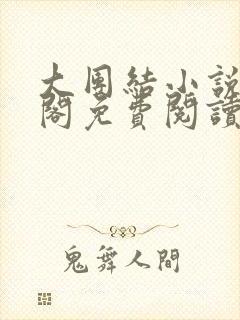 大團結小說
閣免費閱讀
鬼舞人間